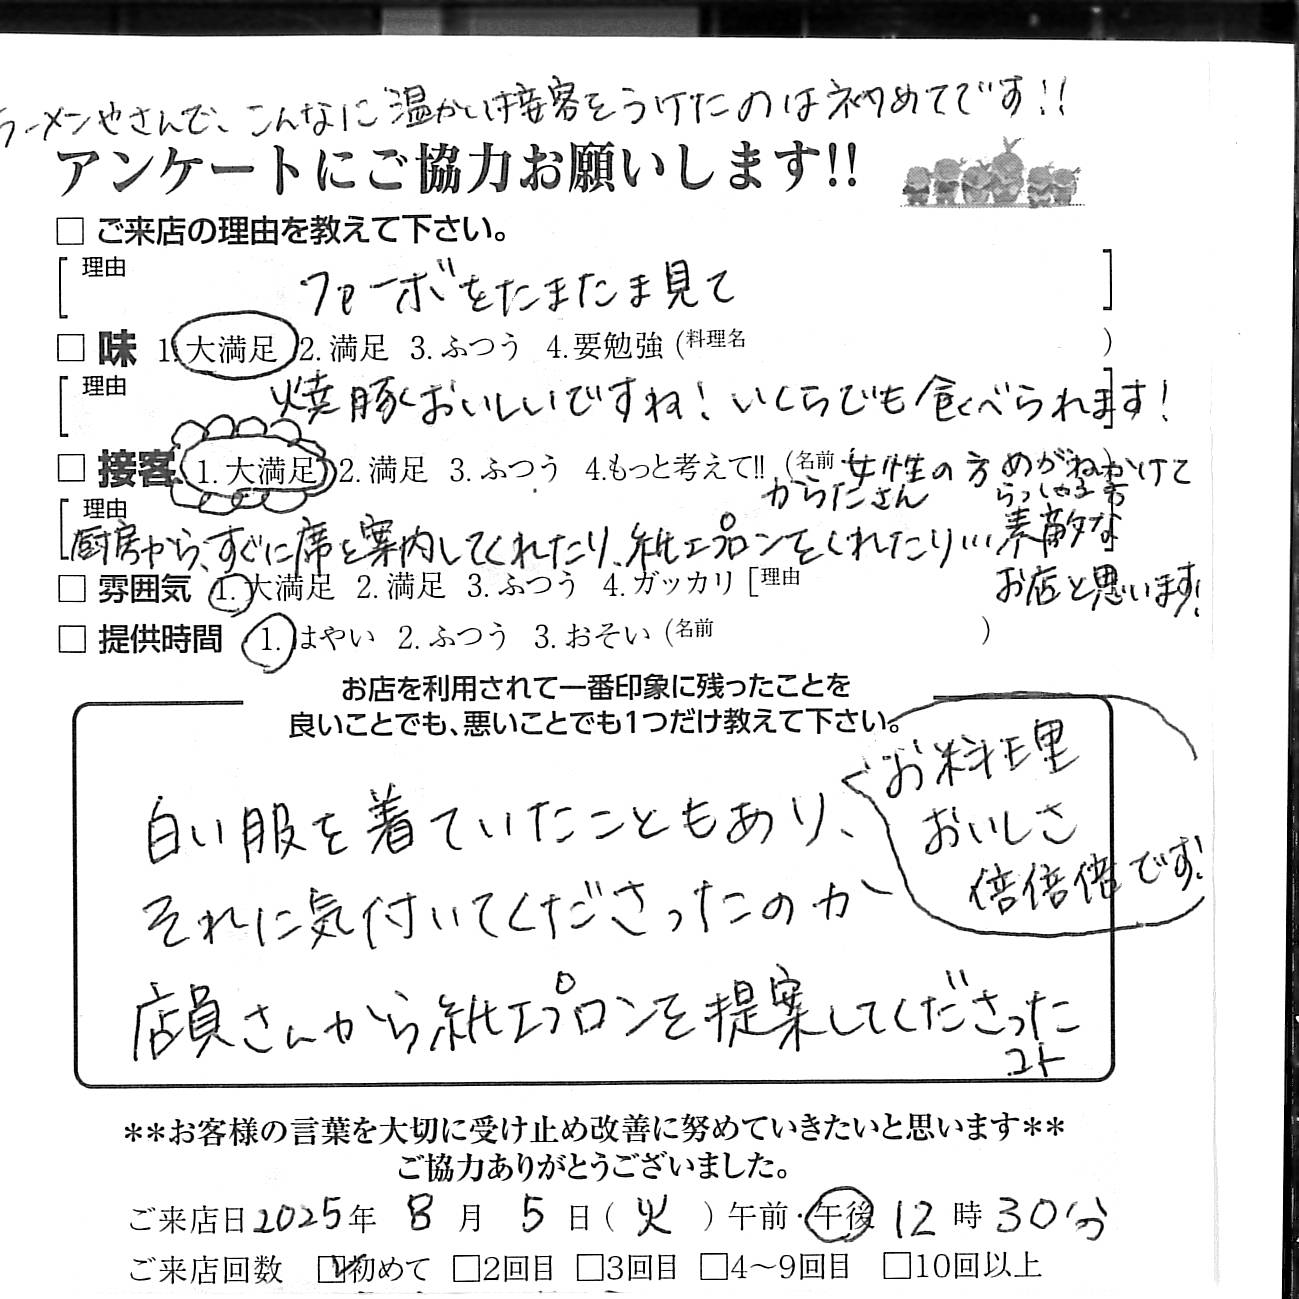 ラーメンやさんで、こんなに温かい接客をうけたのは初めてです!!
アンケートにご協力お願いします!!
□ ご来店の理由を教えて下さい。
理由 フォーボをたまたま見て
□ 味 1.大満足 2.満足 3.ふつう 4.要勉強 (料理名 )
理由 焼豚おいしいですね！いくらでも食べられます！
□ 接客 1.大満足 2.満足 3.ふつう 4.もっと考えて!! (名前 女性の方 めがねかけて
らっしゃる方
からたさん
理由
厨房から、すぐに席を案内してくれたり、紙エプロンをくれたり… 素敵な
お店と思います!
□ 雰囲気 1.大満足 2.満足 3.ふつう 4.ガッカリ [理由
□ 提供時間 1.はやい 2.ふつう 3.おそい (名前 )
お店を利用されて一番印象に残ったことを
良いことでも、悪いことでも1つだけ教えて下さい。
お料理
おいしさ
倍倍倍です!
白い服を着ていたこともあり、
それに気付いてくださったのか
店員さんから紙エプロンを提案してくださった
コト
**お客様の言葉を大切に受け止め改善に努めていきたいと思います**
ご協力ありがとうございました。
ご来店日 2025年 8月 5日(火)午前・午後 12時30分
ご来店回数 ☑初めて □2回目 □3回目 □4～9回目 □10回以上